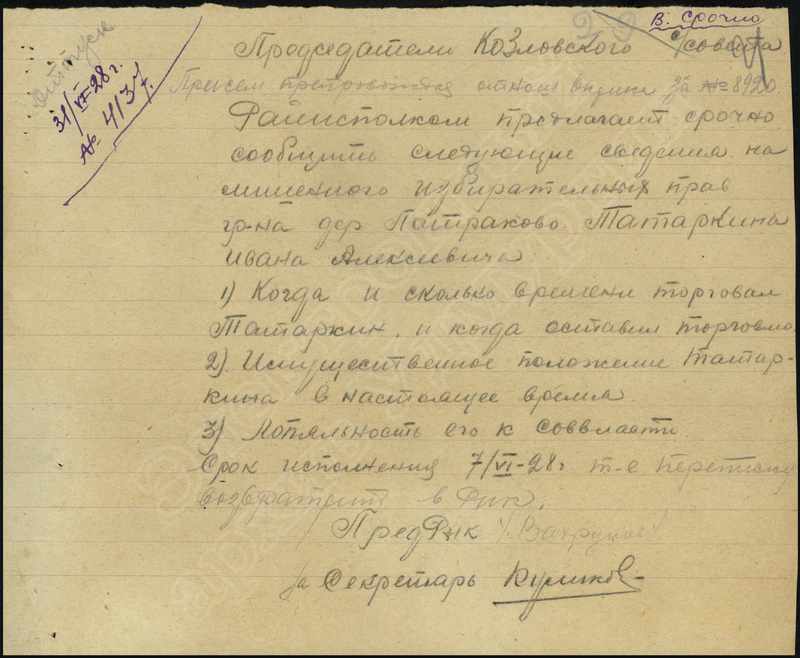 В. Срочно
отпуск
31/VI-28 г.
№ 4134
Председателю Козловского с/совета
При сем препровождая отнош за № 8920
Райисполком предлагает срочно
сообщить следующие сведения на
лишенного избирательных прав
гр-на дер Патраково Татаркина
Ивана Алексеевича
1) Когда и сколько времени торговал
Татаркин, и когда оставил торговлю
2). Имущественное положение Татар-
кина в настоящее время
3) Лояльность его к соввласти
Срок исполнения 7/VI-28 г т-е переписку
возвратить в Рик.
ПредРик
за Секретарь Куликов